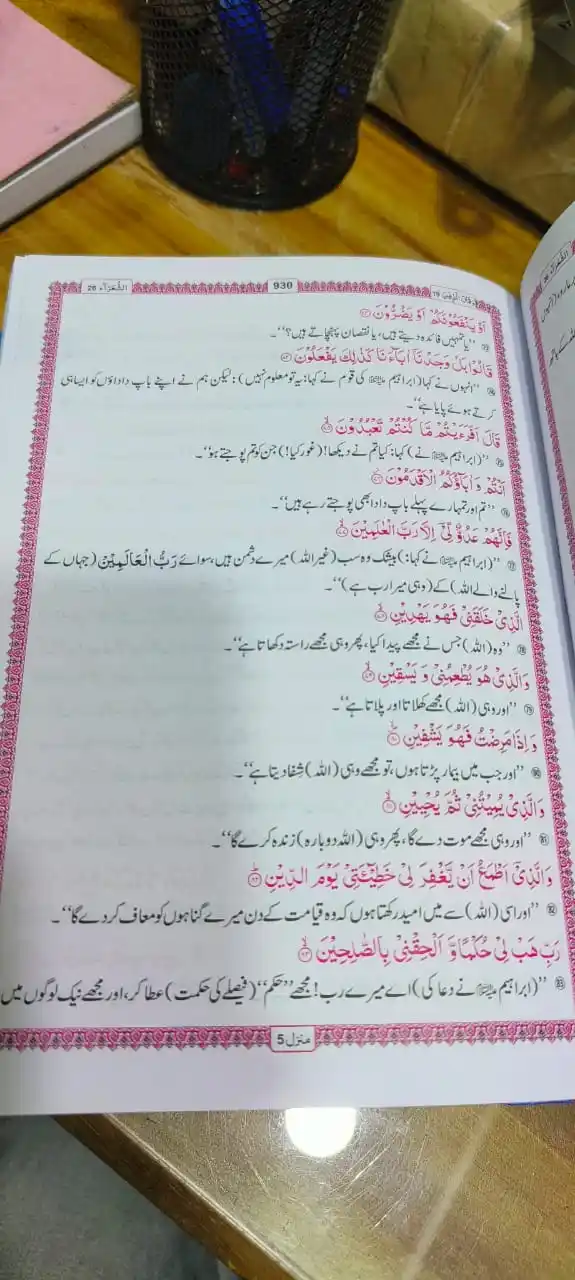 الشُّعَرَآء 26
930
وَقَالَ الَّذِيْنَ 19
اَوْ يَنْفَعُوْنَكُمْ اَوْ يَضُرُّوْنَ ﴿۷۳﴾
﴿73﴾ ”یا تمہیں فائدہ دیتے ہیں، یا نقصان پہنچاتے ہیں؟“۔
قَالُوْا بَلْ وَجَدْنَاۤ اٰبَآءَنَا كَذٰلِكَ يَفْعَلُوْنَ ﴿۷۴﴾
﴿74﴾ ”انہوں نے کہا (ابراہیم علیہ السلام کی قوم نے کہا: یہ تو معلوم نہیں): لیکن ہم نے اپنے باپ داداؤں کو ایسا ہی
کرتے ہوئے پایا ہے“۔
قَالَ اَفَرَءَيْتُمْ مَّا كُنْتُمْ تَعْبُدُوْنَ ﴿۷۵﴾
﴿75﴾ ”(ابراہیم علیہ السلام نے) کہا: کیا تم نے دیکھا! (غور کیا!) جن کو تم پوجتے ہو“۔
اَنْتُمْ وَاٰبَآؤُكُمُ الْاَقْدَمُوْنَ ﴿۷۶﴾
﴿76﴾ ”تم اور تمہارے پہلے باپ دادا بھی پوجتے رہے ہیں“۔
فَاِنَّهُمْ عَدُوٌّ لِّيْۤ اِلَّا رَبَّ الْعٰلَمِيْنَ ﴿۷۷﴾
﴿77﴾ ”(ابراہیم علیہ السلام نے کہا:) بیشک وہ سب (غیر اللہ) میرے دشمن ہیں، سوائے رَبُّ الْعَالَمِيْنَ (جہاں کے
پالنے والے اللہ) کے (وہی میرا رب ہے)“۔
الَّذِيْ خَلَقَنِيْ فَهُوَ يَهْدِيْنِ ﴿۷۸﴾
﴿78﴾ ”وہ (اللہ) جس نے مجھے پیدا کیا، پھر وہی مجھے راستہ دکھاتا ہے“۔
وَالَّذِيْ هُوَ يُطْعِمُنِيْ وَيَسْقِيْنِ ﴿۷۹﴾
﴿79﴾ ”اور وہی (اللہ) مجھے کھلاتا اور پلاتا ہے“۔
وَاِذَا مَرِضْتُ فَهُوَ يَشْفِيْنِ ﴿۸۰﴾
﴿80﴾ ”اور جب میں بیمار پڑتا ہوں، تو مجھے وہی (اللہ) شِفا دیتا ہے“۔
وَالَّذِيْ يُمِيْتُنِيْ ثُمَّ يُحْيِيْنِ ﴿۸۱﴾
﴿81﴾ ”اور وہی مجھے موت دے گا، پھر وہی (اللہ دوبارہ) زندہ کرے گا“۔
وَالَّذِيْۤ اَطْمَعُ اَنْ يَّغْفِرَ لِيْ خَطِيْٓئَتِيْ يَوْمَ الدِّيْنِ ﴿۸۲﴾
﴿82﴾ ”اور اسی (اللہ) سے میں امید رکھتا ہوں کہ وہ قیامت کے دن میرے گناہوں کو معاف کر دے گا“۔
رَبِّ هَبْ لِيْ حُكْمًا وَّ اَلْحِقْنِيْ بِالصّٰلِحِيْنَ ﴿۸۳﴾
﴿83﴾ ”(ابراہیم علیہ السلام نے دعا کی) اے میرے رب! مجھے ”حکم“ (فیصلے کی حکمت) عطا کر، اور مجھے نیک لوگوں میں
منزل 5